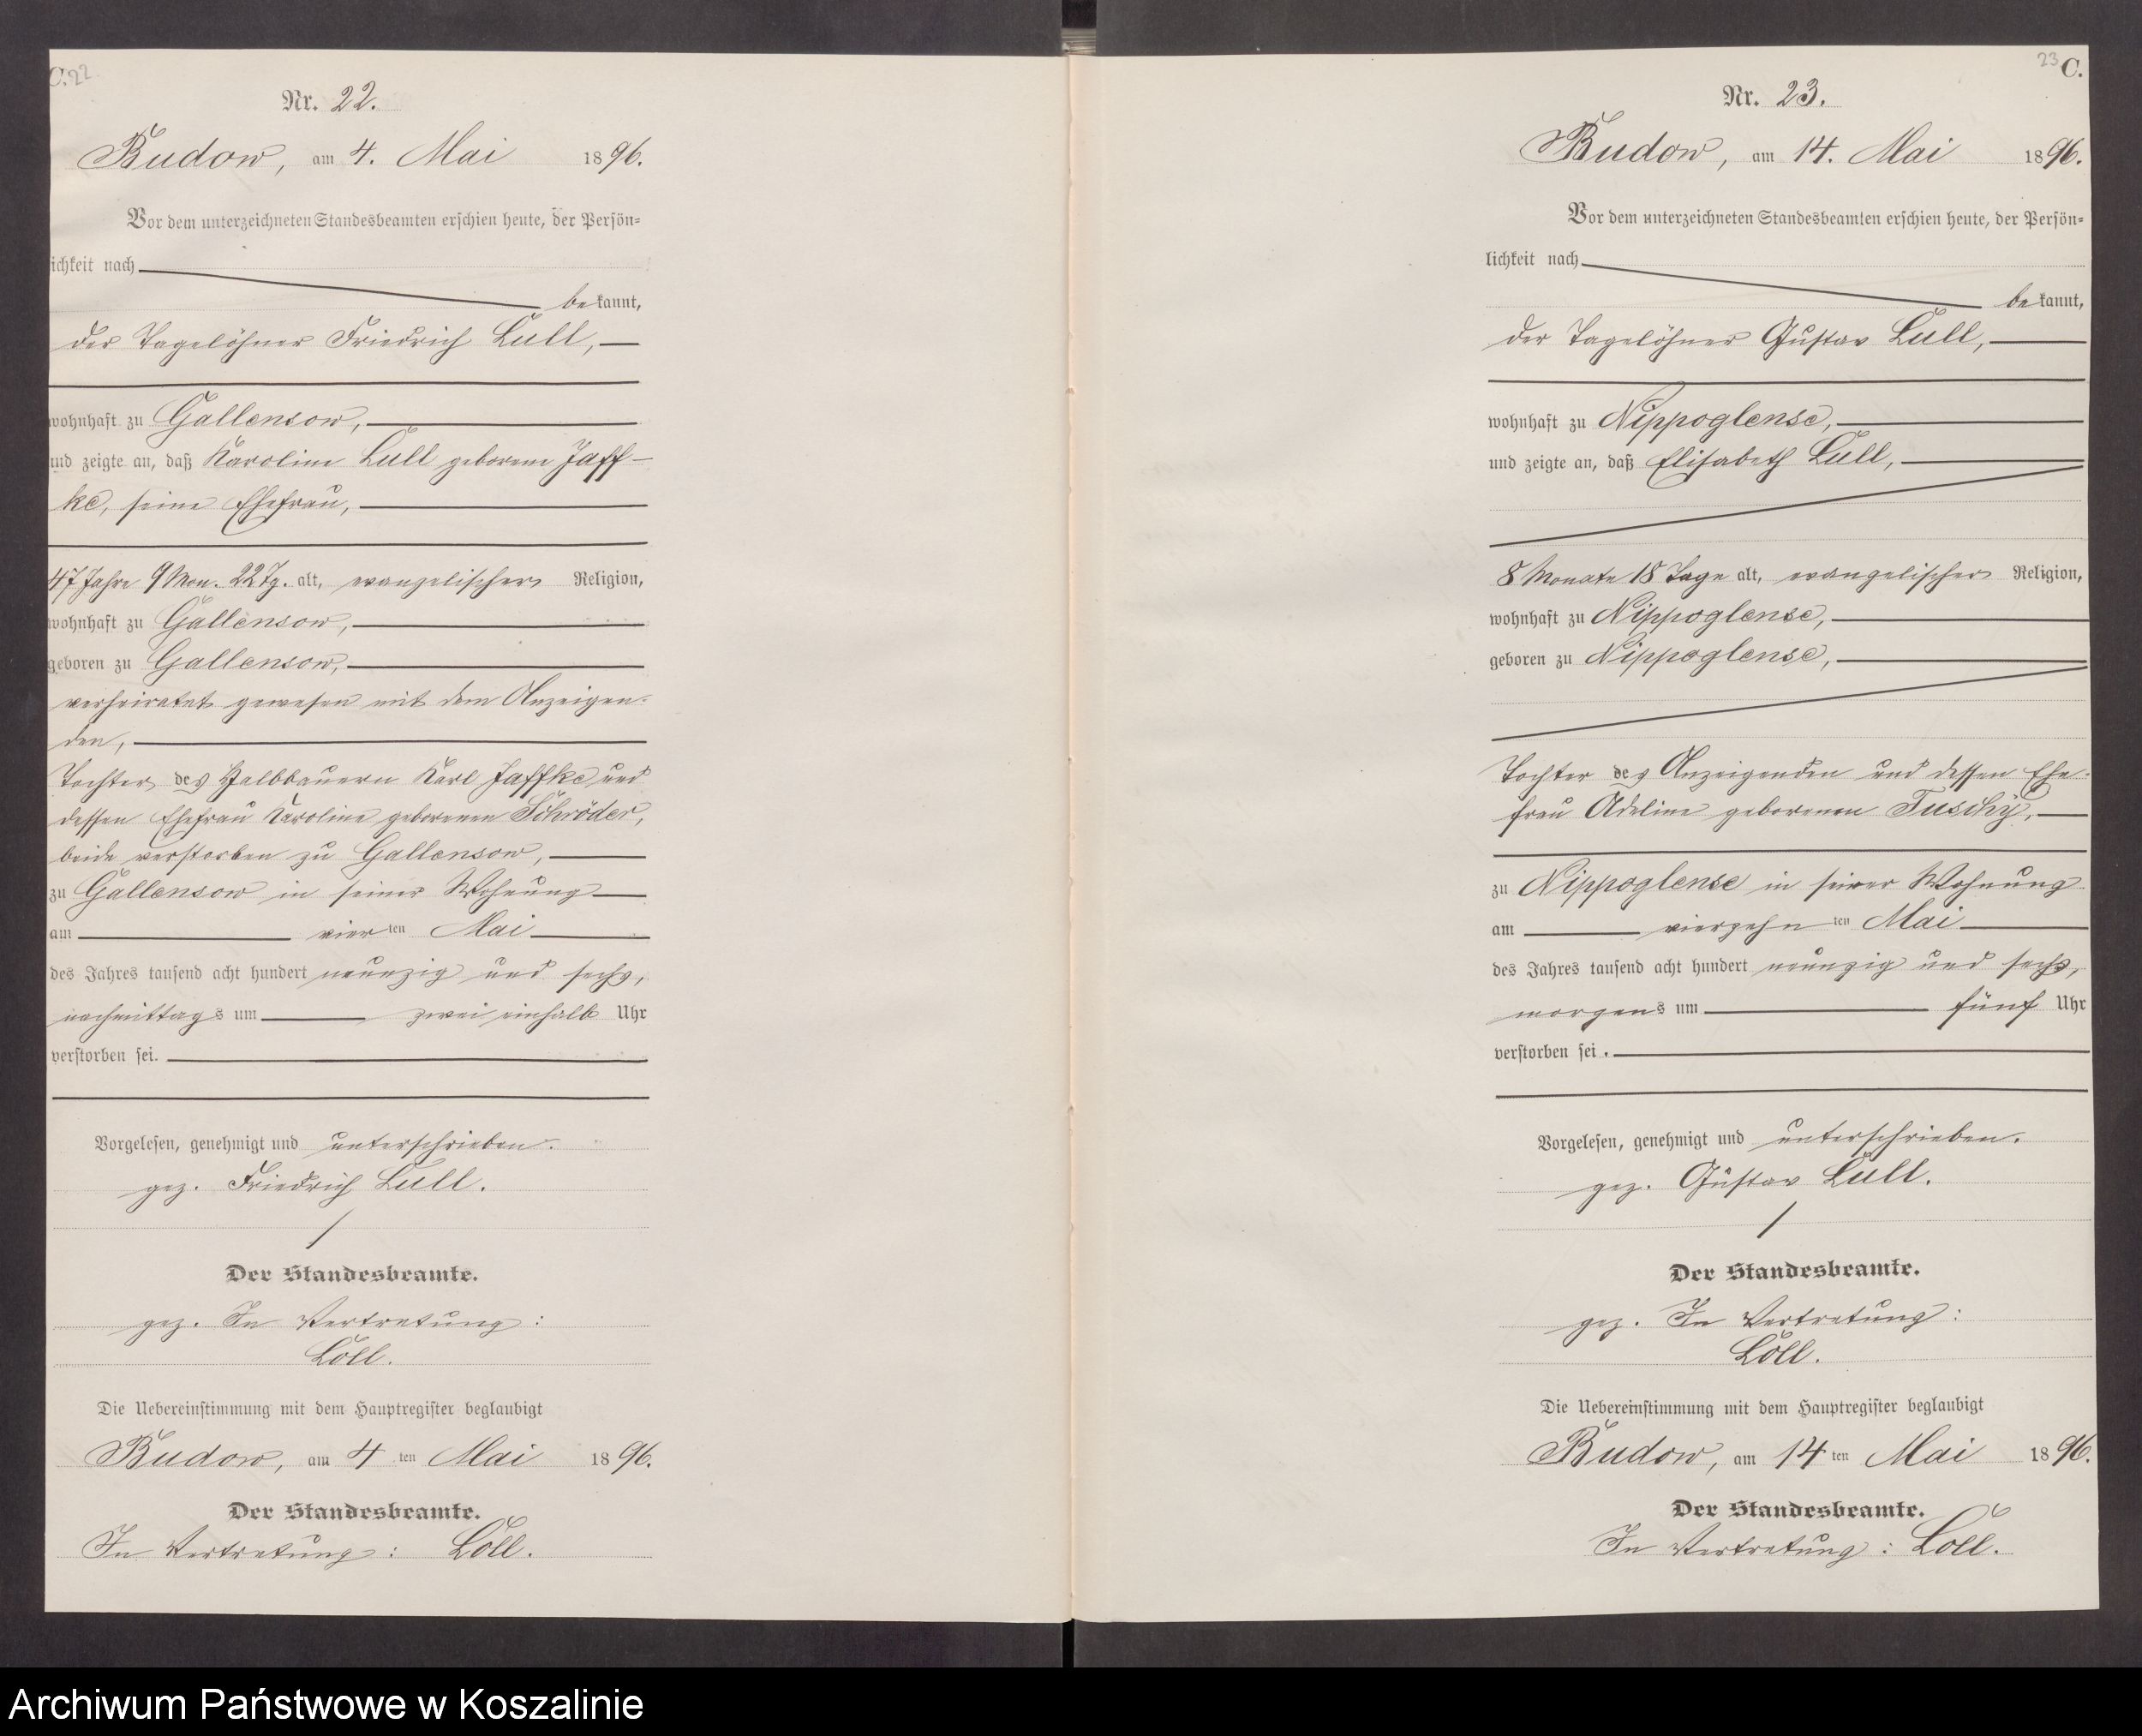 C. 22
Nr. 22.
Budow, am 4. Mai 1896.
Vor dem unterzeichneten Standesbeamten erschien heute, der Persön-
ichkeit nach
bekannt,
der Tagelöhner Friedrich Lüll,
wohnhaft zu Gallensow,
und zeigte an, daß Karoline Lüll geborene Jaff-
ke, seine Ehefrau,
47 Jahre 9 Mon. 22 Tg. alt, evangelischer Religion,
wohnhaft zu Gallensow,
geboren zu Gallensow,
verheiratet gewesen mit dem Anzeigen-
den,
Tochter des Halbbauern Karl Jaffke und
dessen Ehefrau Karoline geborenen Schröder,
beide verstorben zu Gallensow,
zu Gallensow in seiner Wohnung
am vierten Mai
des Jahres tausend acht hundert neunzig und sechs,
nachmittags um zwei einhalb Uhr
verstorben sei.
Vorgelesen, genehmigt und unterschrieben.
gez. Friedrich Lüll.
Der Standesbeamte.
gez. In Vertretung:
Löll.
Die Uebereinstimmung mit dem Hauptregister beglaubigt
Budow, am 4ten Mai 1896.
Der Standesbeamte.
In Vertretung: Löll.
23 C.
Nr. 23.
Budow, am 14. Mai 1896.
Vor dem unterzeichneten Standesbeamten erschien heute, der Persön-
lichkeit nach
bekannt,
der Tagelöhner Gustav Lüll,
wohnhaft zu Nippoglense,
und zeigte an, daß Elisabeth Lüll,
8 Monate 18 Tage alt, evangelischer Religion,
wohnhaft zu Nippoglense,
geboren zu Nippoglense,
Tochter des Anzeigenden und dessen Ehe-
frau Adeline geborenen Tuschy,
zu Nippoglense in seiner Wohnung
am vierzehnten Mai
des Jahres tausend acht hundert neunzig und sechs,
morgens um fünf Uhr
verstorben sei.
Vorgelesen, genehmigt und unterschrieben.
gez. Gustav Lüll.
Der Standesbeamte.
gez. In Vertretung:
Löll.
Die Uebereinstimmung mit dem Hauptregister beglaubigt
Budow, am 14ten Mai 1896.
Der Standesbeamte.
In Vertretung: Löll.
Archiwum Państwowe w Koszalinie